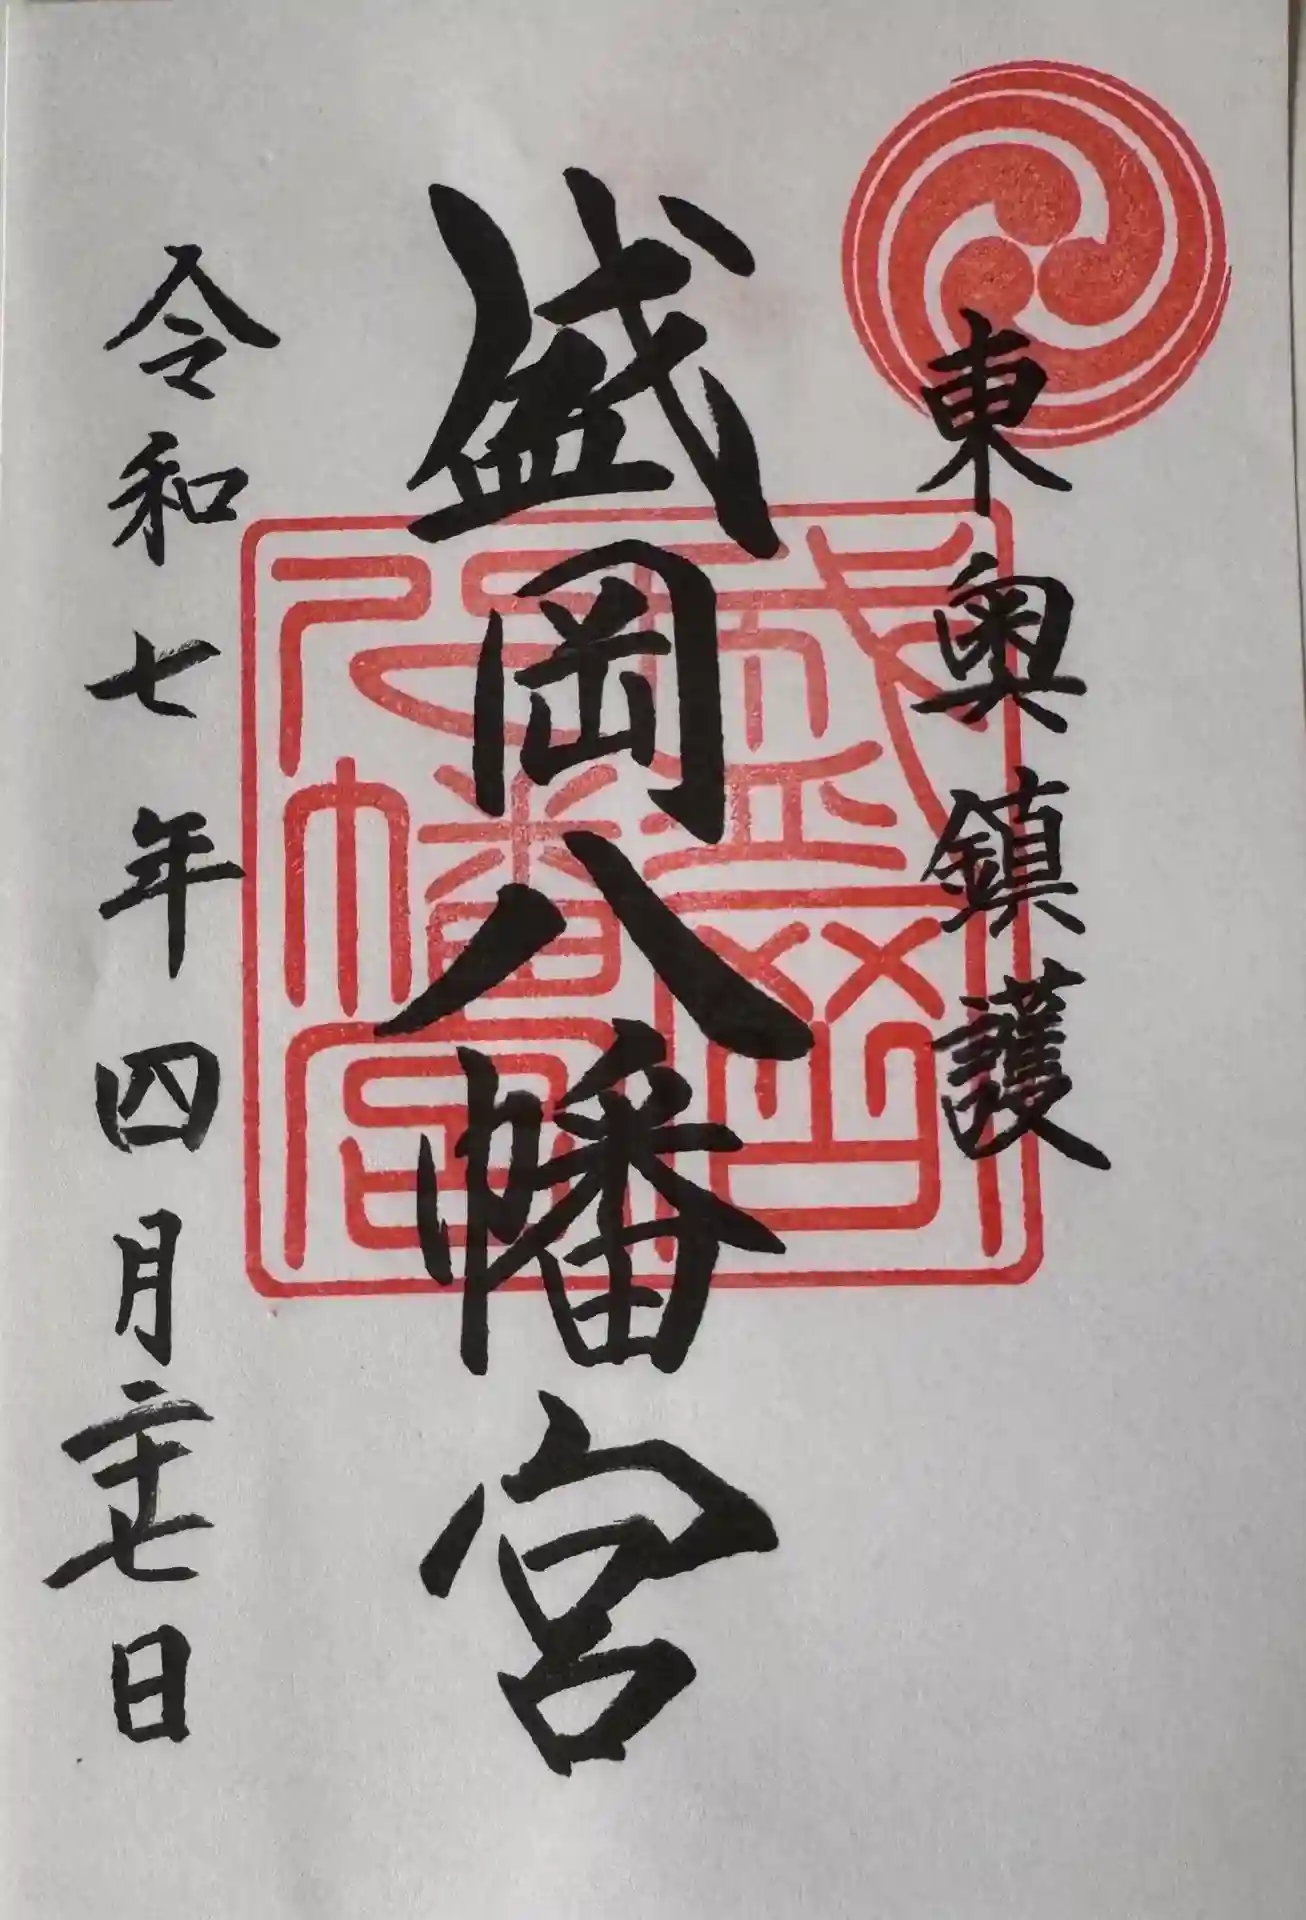 東奥鎮護
盛岡八幡宮
盛岡八幡宮
令和七年四月二十七日